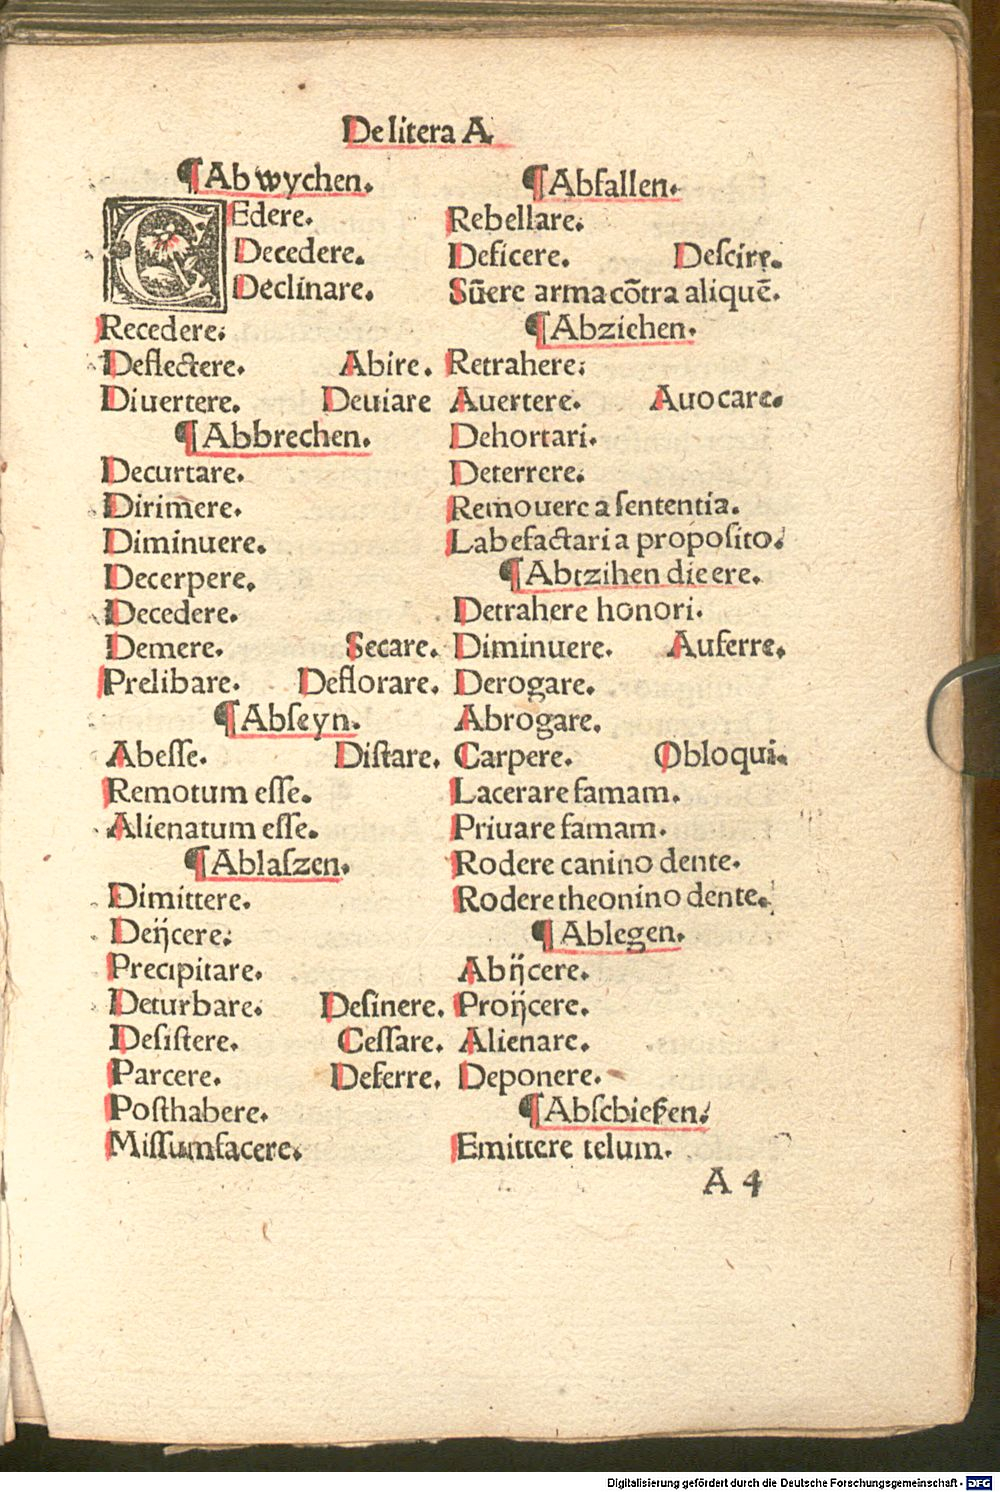 De litera A
¶ Ab wychen.
CEdere.
Decedere.
Declinare.
Recedere.
Deflectere. Abire.
Diuertere. Deuiare
¶ Abbrechen.
Decurtare.
Dirimere.
Diminuere.
Decerpere.
Decedere.
Demere. Secare.
Prelibare. Deflorare.
¶ Abſeyn.
Abeſſe. Diſtare.
Remotum eſſe.
Alienatum eſſe.
¶ Ablaſzen.
Dimittere.
Deijcere.
Precipitare.
Deturbare. Deſinere.
Deſiſtere. Ceſſare.
Parcere. Deferre.
Poſthabere.
Miſſumfacere.
¶ Abfallen.
Rebellare.
Deficere. Deſcire.
Sūere arma cōtra aliquē.
¶ Abziehen.
Retrahere.
Auertere. Auocare.
Dehortari.
Deterrere.
Remouere a ſententia.
Labefactari a propoſito.
¶ Abtzihen die ere.
Detrahere honori.
Diminuere. Auferre.
Derogare.
Abrogare.
Carpere. Obloqui.
Lacerare famam.
Priuare famam.
Rodere canino dente.
Rodere theonino dente.
¶ Ablegen.
Abijcere.
Proijcere.
Alienare.
Deponere.
¶ Abſchieſſen.
Emittere telum.
A 4
Digitalisierung gefördert durch die Deutsche Forschungsgemeinschaft - DFG